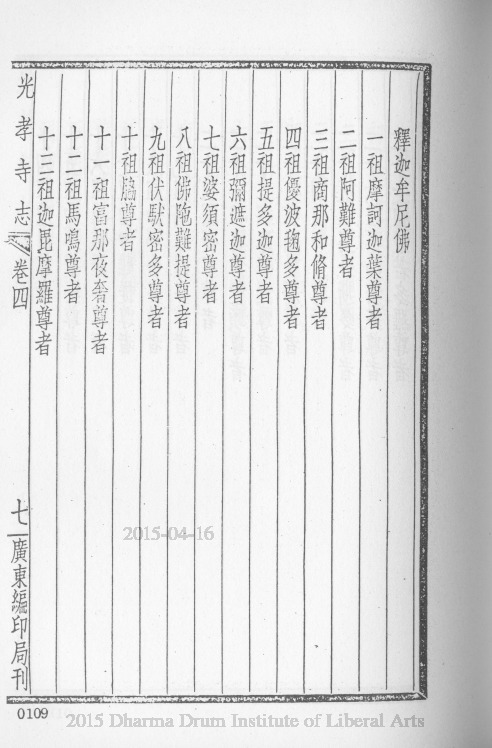 釋迦牟尼佛
一祖摩訶迦葉尊者
二祖阿難尊者
三祖商那和脩尊者
四祖優波毱多尊者
五祖提多迦尊者
六祖彌遮迦尊者
七祖婆須密尊者
八祖佛陁難提尊者
九祖伏馱密多尊者
十祖脇尊者
十一祖富那夜奢尊者
十二祖馬鳴尊者
十三祖迦毘摩羅尊者
光孝寺志 卷四 七 廣東編印局刊
2015-04-16
0109
2015 Dharma Drum Institute of Liberal Arts